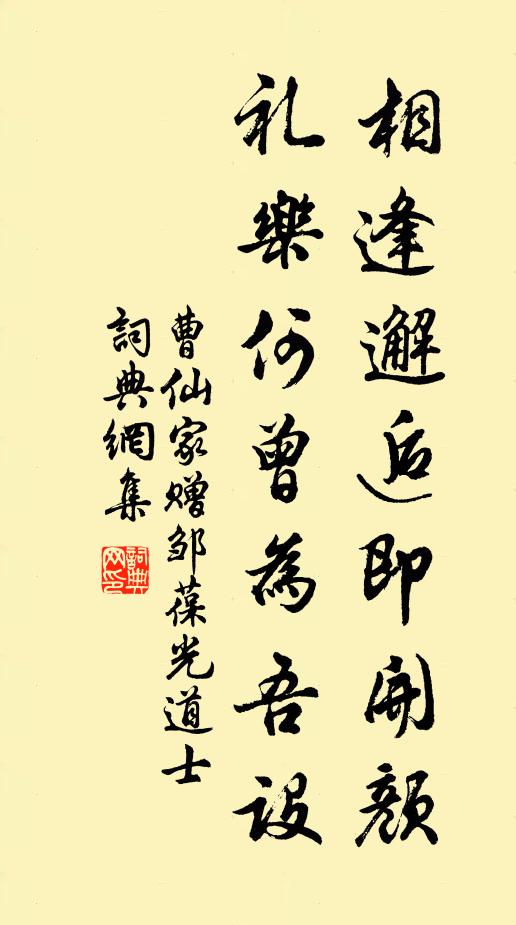 相逢邂逅即開顏
礼樂何曾為吾設
曹仙家贈邹葆光道士
詞典網集
詞典网印